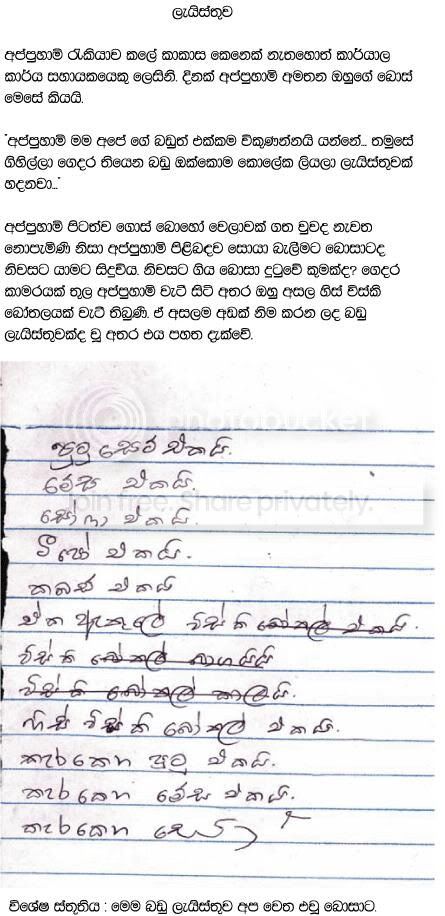 ලැයිස්තුව
අප්පුහාමි රැකියාව කලේ කාකාස කෙනෙක් නැතහොත් කාර්යාල
කාර්ය සහායකයෙකු ලෙසිනි. දිනක් අප්පුහාමි අමතන ඔහුගේ බොස්
මෙසේ කියයි.
"අප්පුහාමි මම අපේ ගේ බඩුත් එක්කම විකුණන්නයි යන්නේ... තමුසේ
ගිහිල්ලා ගෙදර තියෙන බඩු ඔක්කොම කොලේක ලියලා ලැයිස්තුවක්
හදනවා..."
අප්පුහාමි පිටත්ව ගොස් බොහෝ වෙලාවක් ගත වුවද නැවත
නොපැමිණි නිසා අප්පුහාමි පිළිබඳව සොයා බැලීමට බොසාටද
නිවසට යාමට සිදුවිය. නිවසට ගිය බොසා දුටුවේ කුමක්ද? ගෙදර
කාමරයක් තුල අප්පුහාමි වැටී සිටි අතර ඔහු අසල හිස් විස්කි
බෝතලයක් වැටී තිබුණි. ඒ අසලම අඩක් නිම කරන ලද බඩු
ලැයිස්තුවක්ද වූ අතර එය පහත දැක්වේ.
photobucket
Join free. Share privately.
පුටු සෙට් එකයි.
මේස එකයි.
සොෆා එකයි.
ටීපෝ එකයි.
කබඩ් එකයි
ඒක ඇතුලේ විස්කි බෝතල් එකයි.
විස්කි බෝතල් බාගයයි
විස්කි බෝතල් කාලයි.
හිස් විස්කි බෝතල් එකයි.
කැරකෙන පුටු එකයි.
කැරකෙන මේස එකයි.
කැරකෙන
විශේෂ ස්තූතිය : මෙම බඩු ලැයිස්තුව අප වෙත එවූ බොසාට.